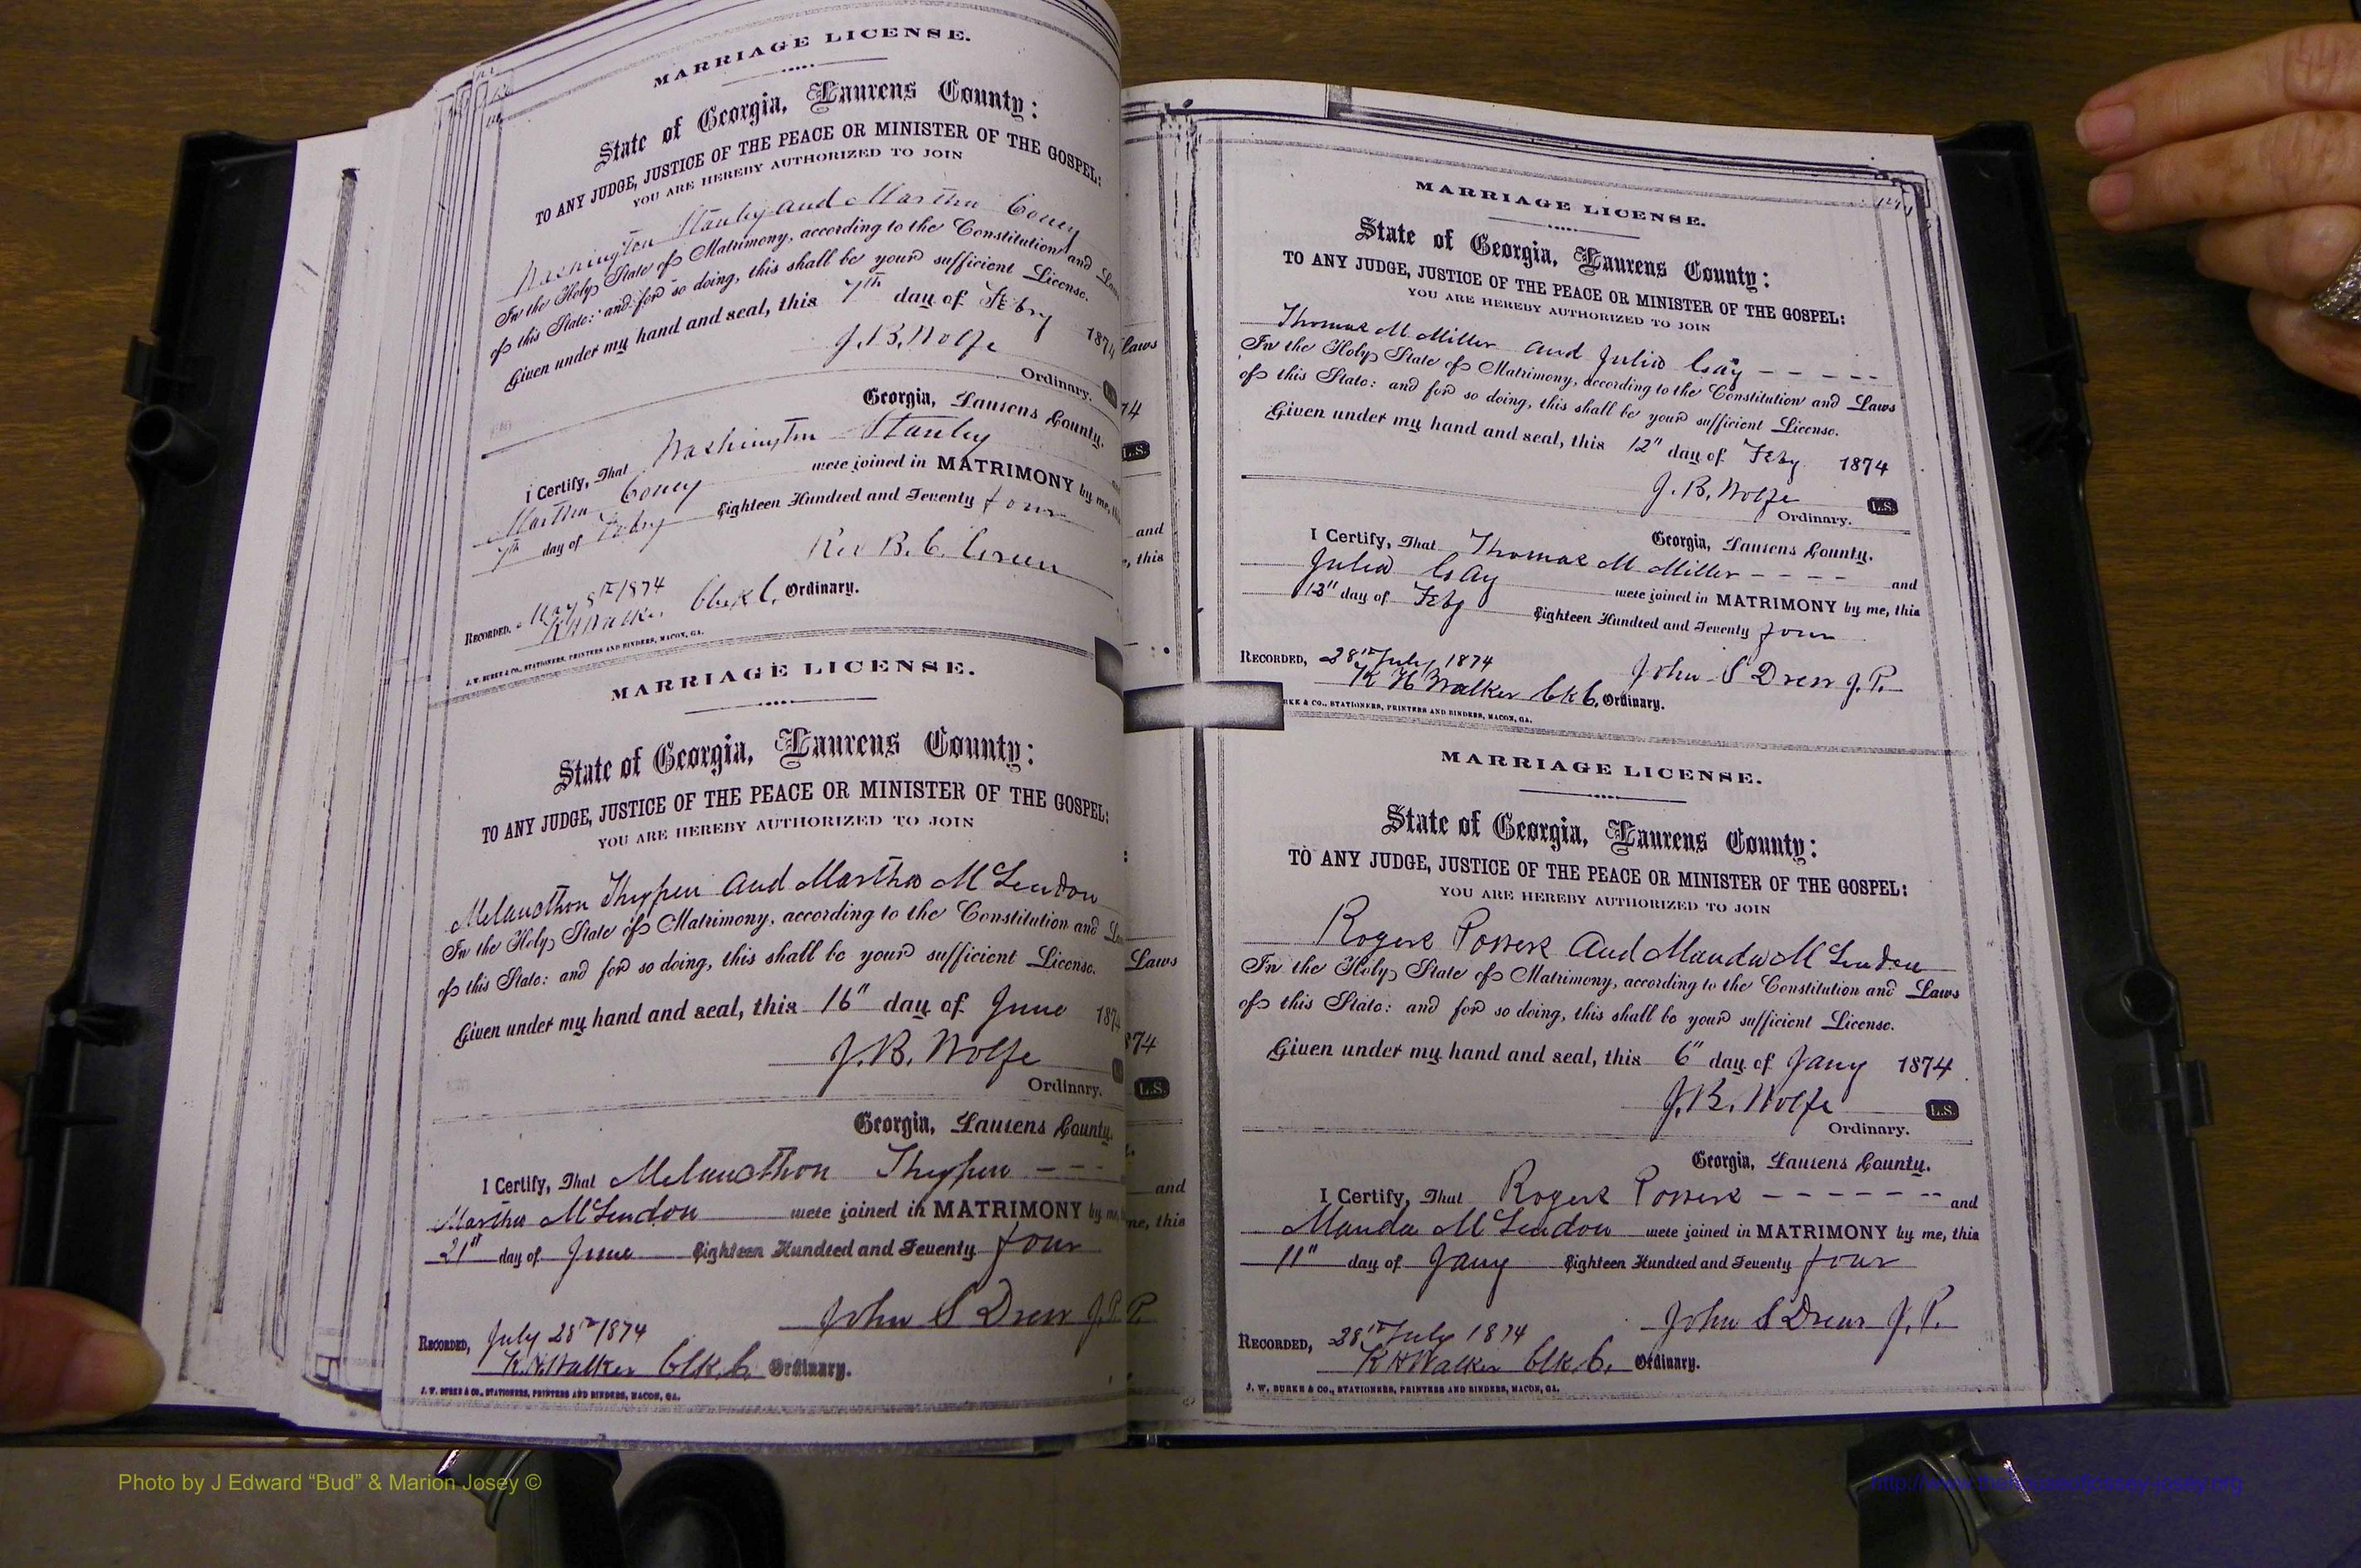 MARRIAGE LICENSE.
State of Georgia, Laurens County:
TO ANY JUDGE, JUSTICE OF THE PEACE OR MINISTER OF THE GOSPEL:
YOU ARE HEREBY AUTHORIZED TO JOIN
Washington Stanley and Martha Coney
In the Holy State of Matrimony, according to the Constitution and
of this State: and for so doing, this shall be your sufficient License.
Given under my hand and seal, this 7th day of Febry 1874
J. B. Wolfe
Ordinary.
Georgia, Laurens County.
I Certify, That Washington Stanley
Martha Coney were joined in MATRIMONY by me,
7th day of Febry Eighteen Hundred and Seventy four
Rev B. C. Green
RECORDED, May 8th 1874
K H Walker Clk C, Ordinary.
J. W. BURKE & CO., STATIONERS, PRINTERS AND BINDERS, MACON, GA.
MARRIAGE LICENSE.
State of Georgia, Laurens County:
TO ANY JUDGE, JUSTICE OF THE PEACE OR MINISTER OF THE GOSPEL:
YOU ARE HEREBY AUTHORIZED TO JOIN
Melancthon Thigpen and Martha McLendon
In the Holy State of Matrimony, according to the Constitution and
of this State: and for so doing, this shall be your sufficient License.
Given under my hand and seal, this 16" day of June 1874
J. B. Wolfe
Ordinary.
Georgia, Laurens County.
I Certify, That Melancthon Thigpen - - -
Martha McLendon were joined in MATRIMONY by me,
21st day of June Eighteen Hundred and Seventy four
John S Drew J. P.
RECORDED, July 28th 1874
K. H. Walker Clk. C. Ordinary.
J. W. BURKE & CO., STATIONERS, PRINTERS AND BINDERS, MACON, GA.
Laws
74
L.S.
and
, this
Laws
874
L.S.
and
me, this
P.
MARRIAGE LICENSE.
State of Georgia, Laurens County:
TO ANY JUDGE, JUSTICE OF THE PEACE OR MINISTER OF THE GOSPEL:
YOU ARE HEREBY AUTHORIZED TO JOIN
Thomas M. Miller and Julia Gay - - - - -
In the Holy State of Matrimony, according to the Constitution and Laws
of this State: and for so doing, this shall be your sufficient License.
Given under my hand and seal, this 12" day of Feby. 1874
J. B. Wolfe L.S.
Ordinary.
Georgia, Laurens County.
I Certify, That Thomas M Miller - - - - and
Julia Gay were joined in MATRIMONY by me, this
12" day of Feby Eighteen Hundred and Seventy four
RECORDED, 28th July 1874 John S Drew J. P.
K H Walker Clk C, Ordinary.
RKE & CO., STATIONERS, PRINTERS AND BINDERS, MACON, GA.
MARRIAGE LICENSE.
State of Georgia, Laurens County:
TO ANY JUDGE, JUSTICE OF THE PEACE OR MINISTER OF THE GOSPEL:
YOU ARE HEREBY AUTHORIZED TO JOIN
Rogers Powers and Manda McLendon
In the Holy State of Matrimony, according to the Constitution and Laws
of this State: and for so doing, this shall be your sufficient License.
Given under my hand and seal, this 6" day of Jany 1874
J. B. Wolfe L.S.
Ordinary.
Georgia, Laurens County.
I Certify, That Rogers Powers - - - - - - and
Manda McLendon were joined in MATRIMONY by me, this
11" day of Jany Eighteen Hundred and Seventy four
John S Drew J. P.
RECORDED, 28th July 1874
K H Walker Clk. C. Ordinary.
J. W. BURKE & CO., STATIONERS, PRINTERS AND BINDERS, MACON, GA.
Photo by J Edward “Bud” & Marion Josey ©